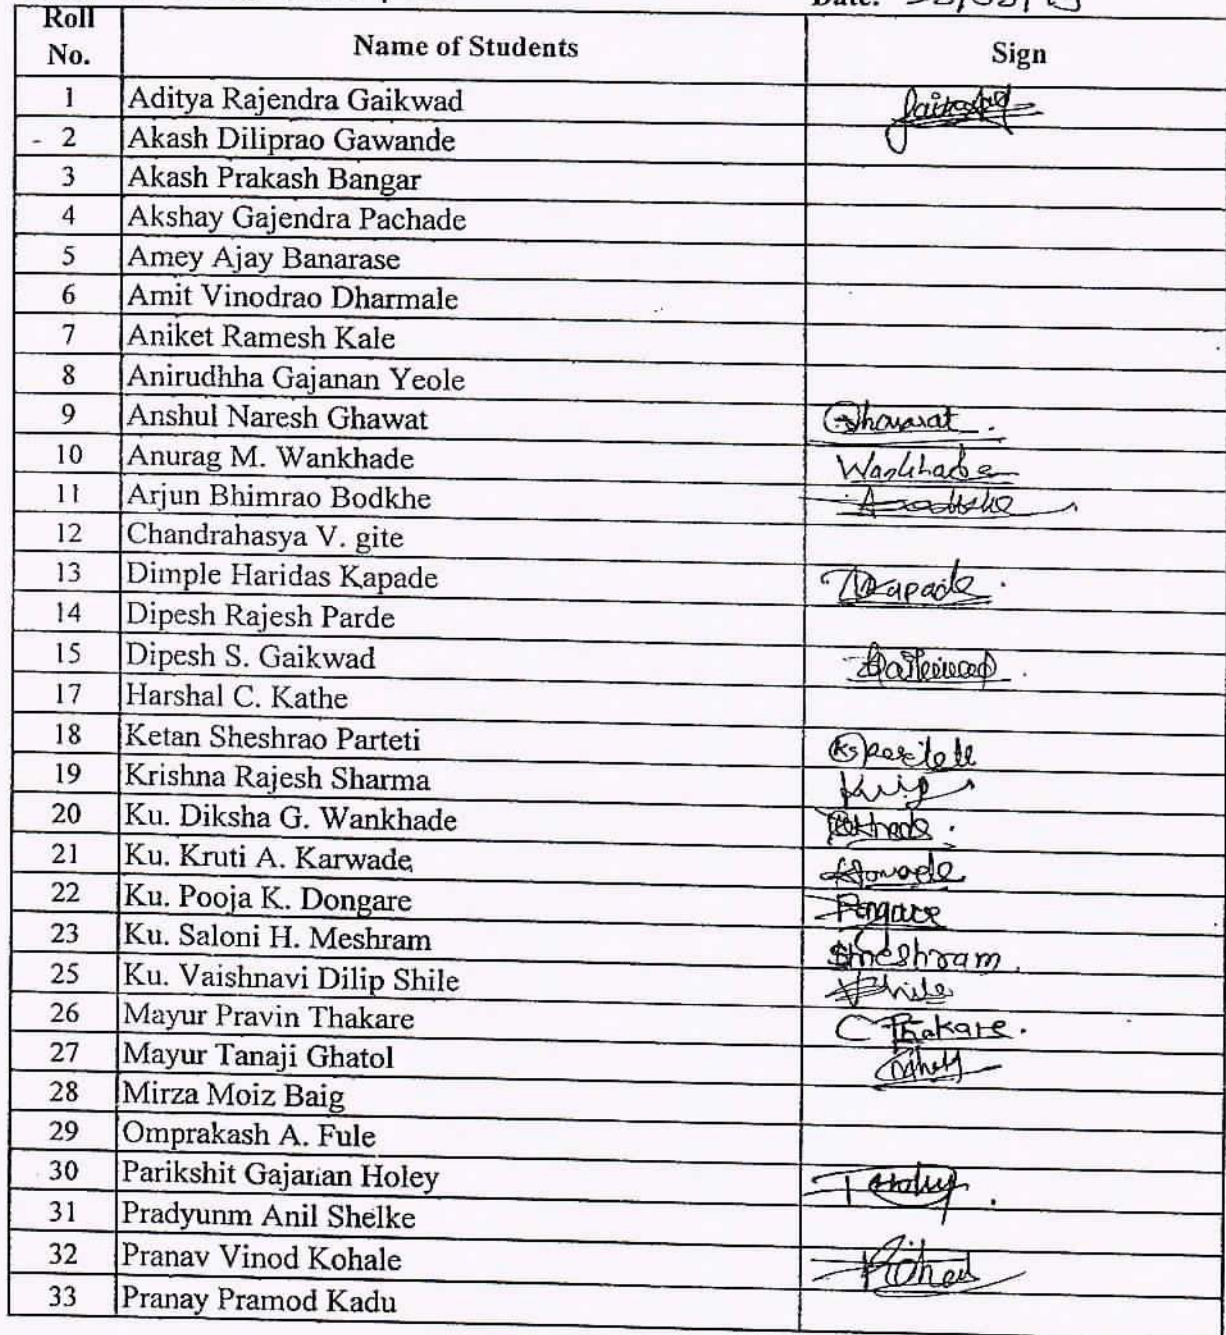 Date:
Roll No. Name of Students Sign
1 Aditya Rajendra Gaikwad Gaikwad
- 2 Akash Diliprao Gawande
3 Akash Prakash Bangar
4 Akshay Gajendra Pachade
5 Amey Ajay Banarase
6 Amit Vinodrao Dharmale
7 Aniket Ramesh Kale
8 Anirudhha Gajanan Yeole
9 Anshul Naresh Ghawat
10 Anurag M. Wankhade Wankhade
11 Arjun Bhimrao Bodkhe
12 Chandrahasya V. gite
13 Dimple Haridas Kapade
14 Dipesh Rajesh Parde
15 Dipesh S. Gaikwad
17 Harshal C. Kathe
18 Ketan Sheshrao Parteti
19 Krishna Rajesh Sharma
20 Ku. Diksha G. Wankhade
21 Ku. Kruti A. Karwade
22 Ku. Pooja K. Dongare
23 Ku. Saloni H. Meshram Smeshram
25 Ku. Vaishnavi Dilip Shile
26 Mayur Pravin Thakare Thakare.
27 Mayur Tanaji Ghatol
28 Mirza Moiz Baig
29 Omprakash A. Fule
30 Parikshit Gajanan Holey
31 Pradyunm Anil Shelke
32 Pranav Vinod Kohale
33 Pranay Pramod Kadu